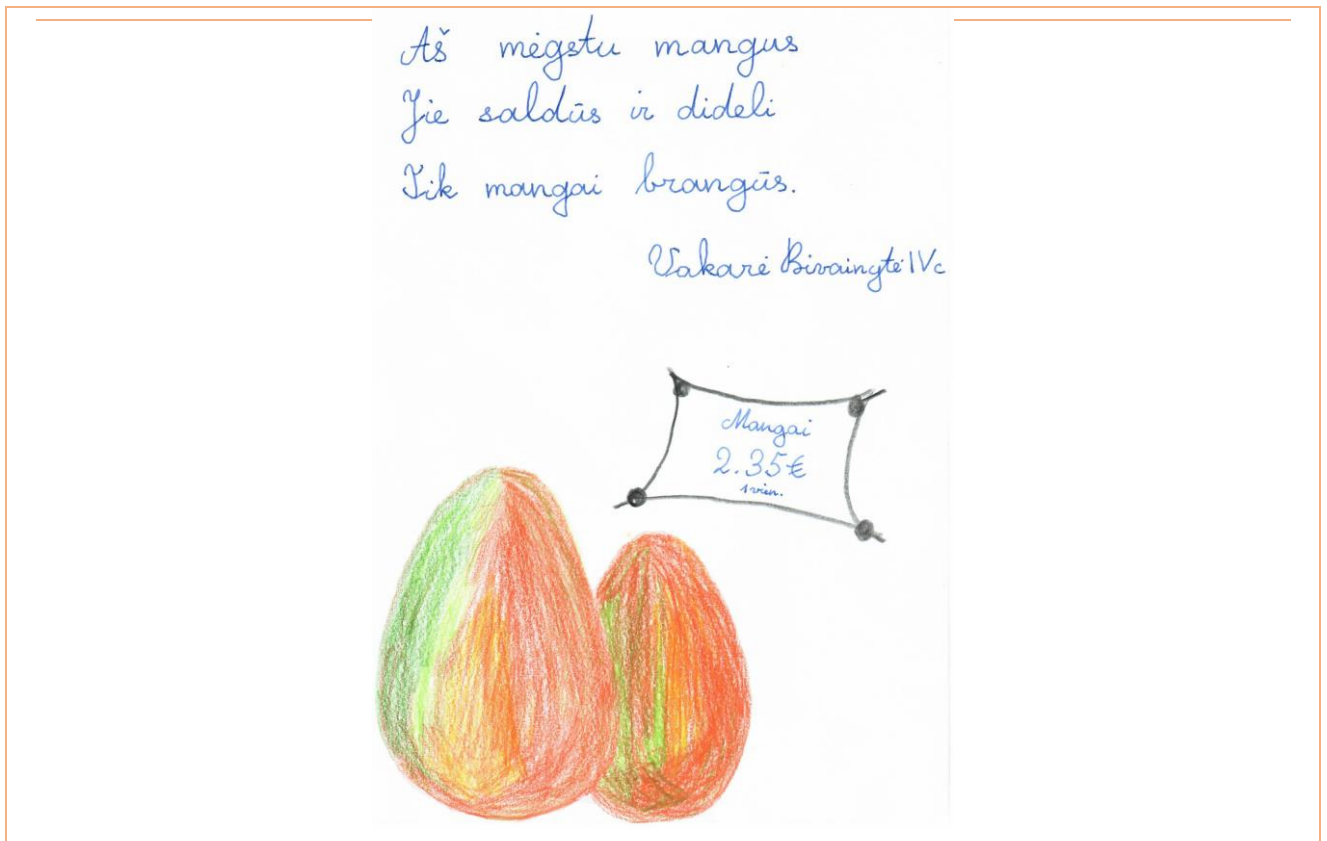 Aš mėgstu mangus
Jie saldūs ir dideli
Tik mangai brangūs.
Vakarė Bivainytė IVc
Mangai
2.35€
1 vien.